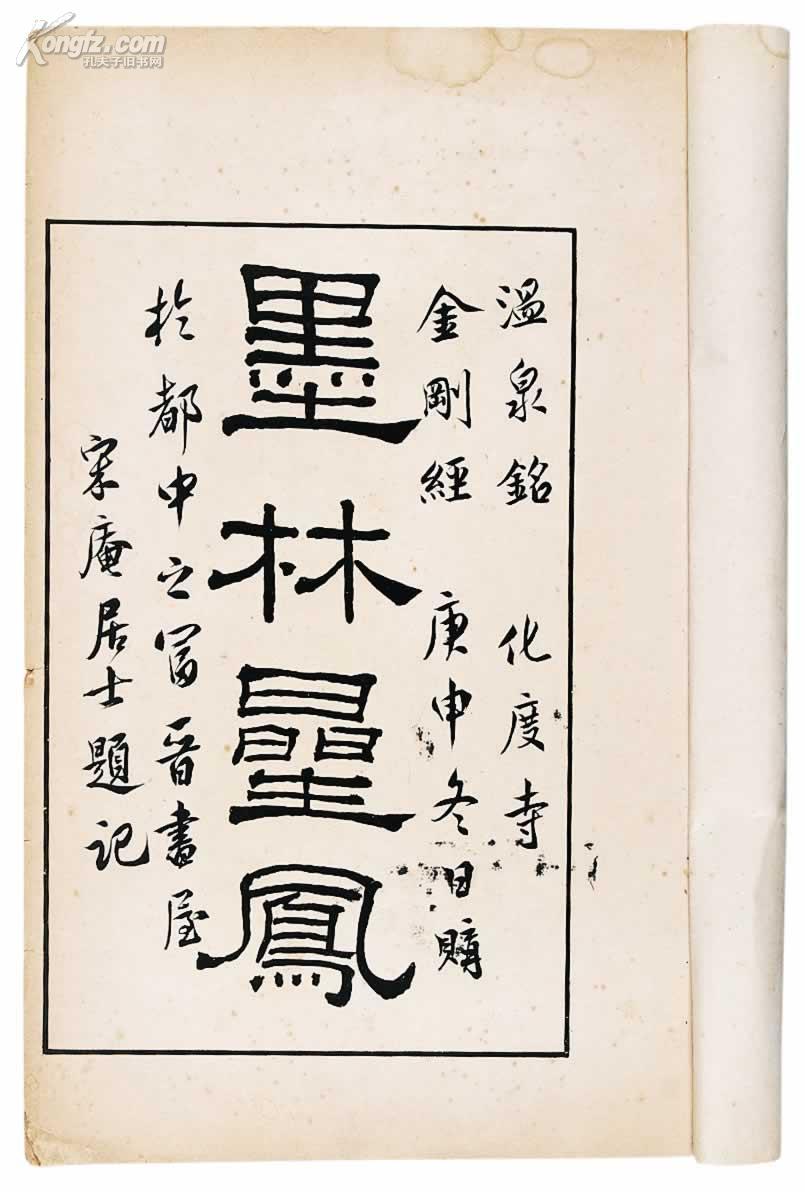 溫泉銘 化度寺
金剛經 庚申冬日購
墨林曐鳳
於都中之冨晉書屋
寀庵居士題記
Kongfz.com
孔夫子旧书网